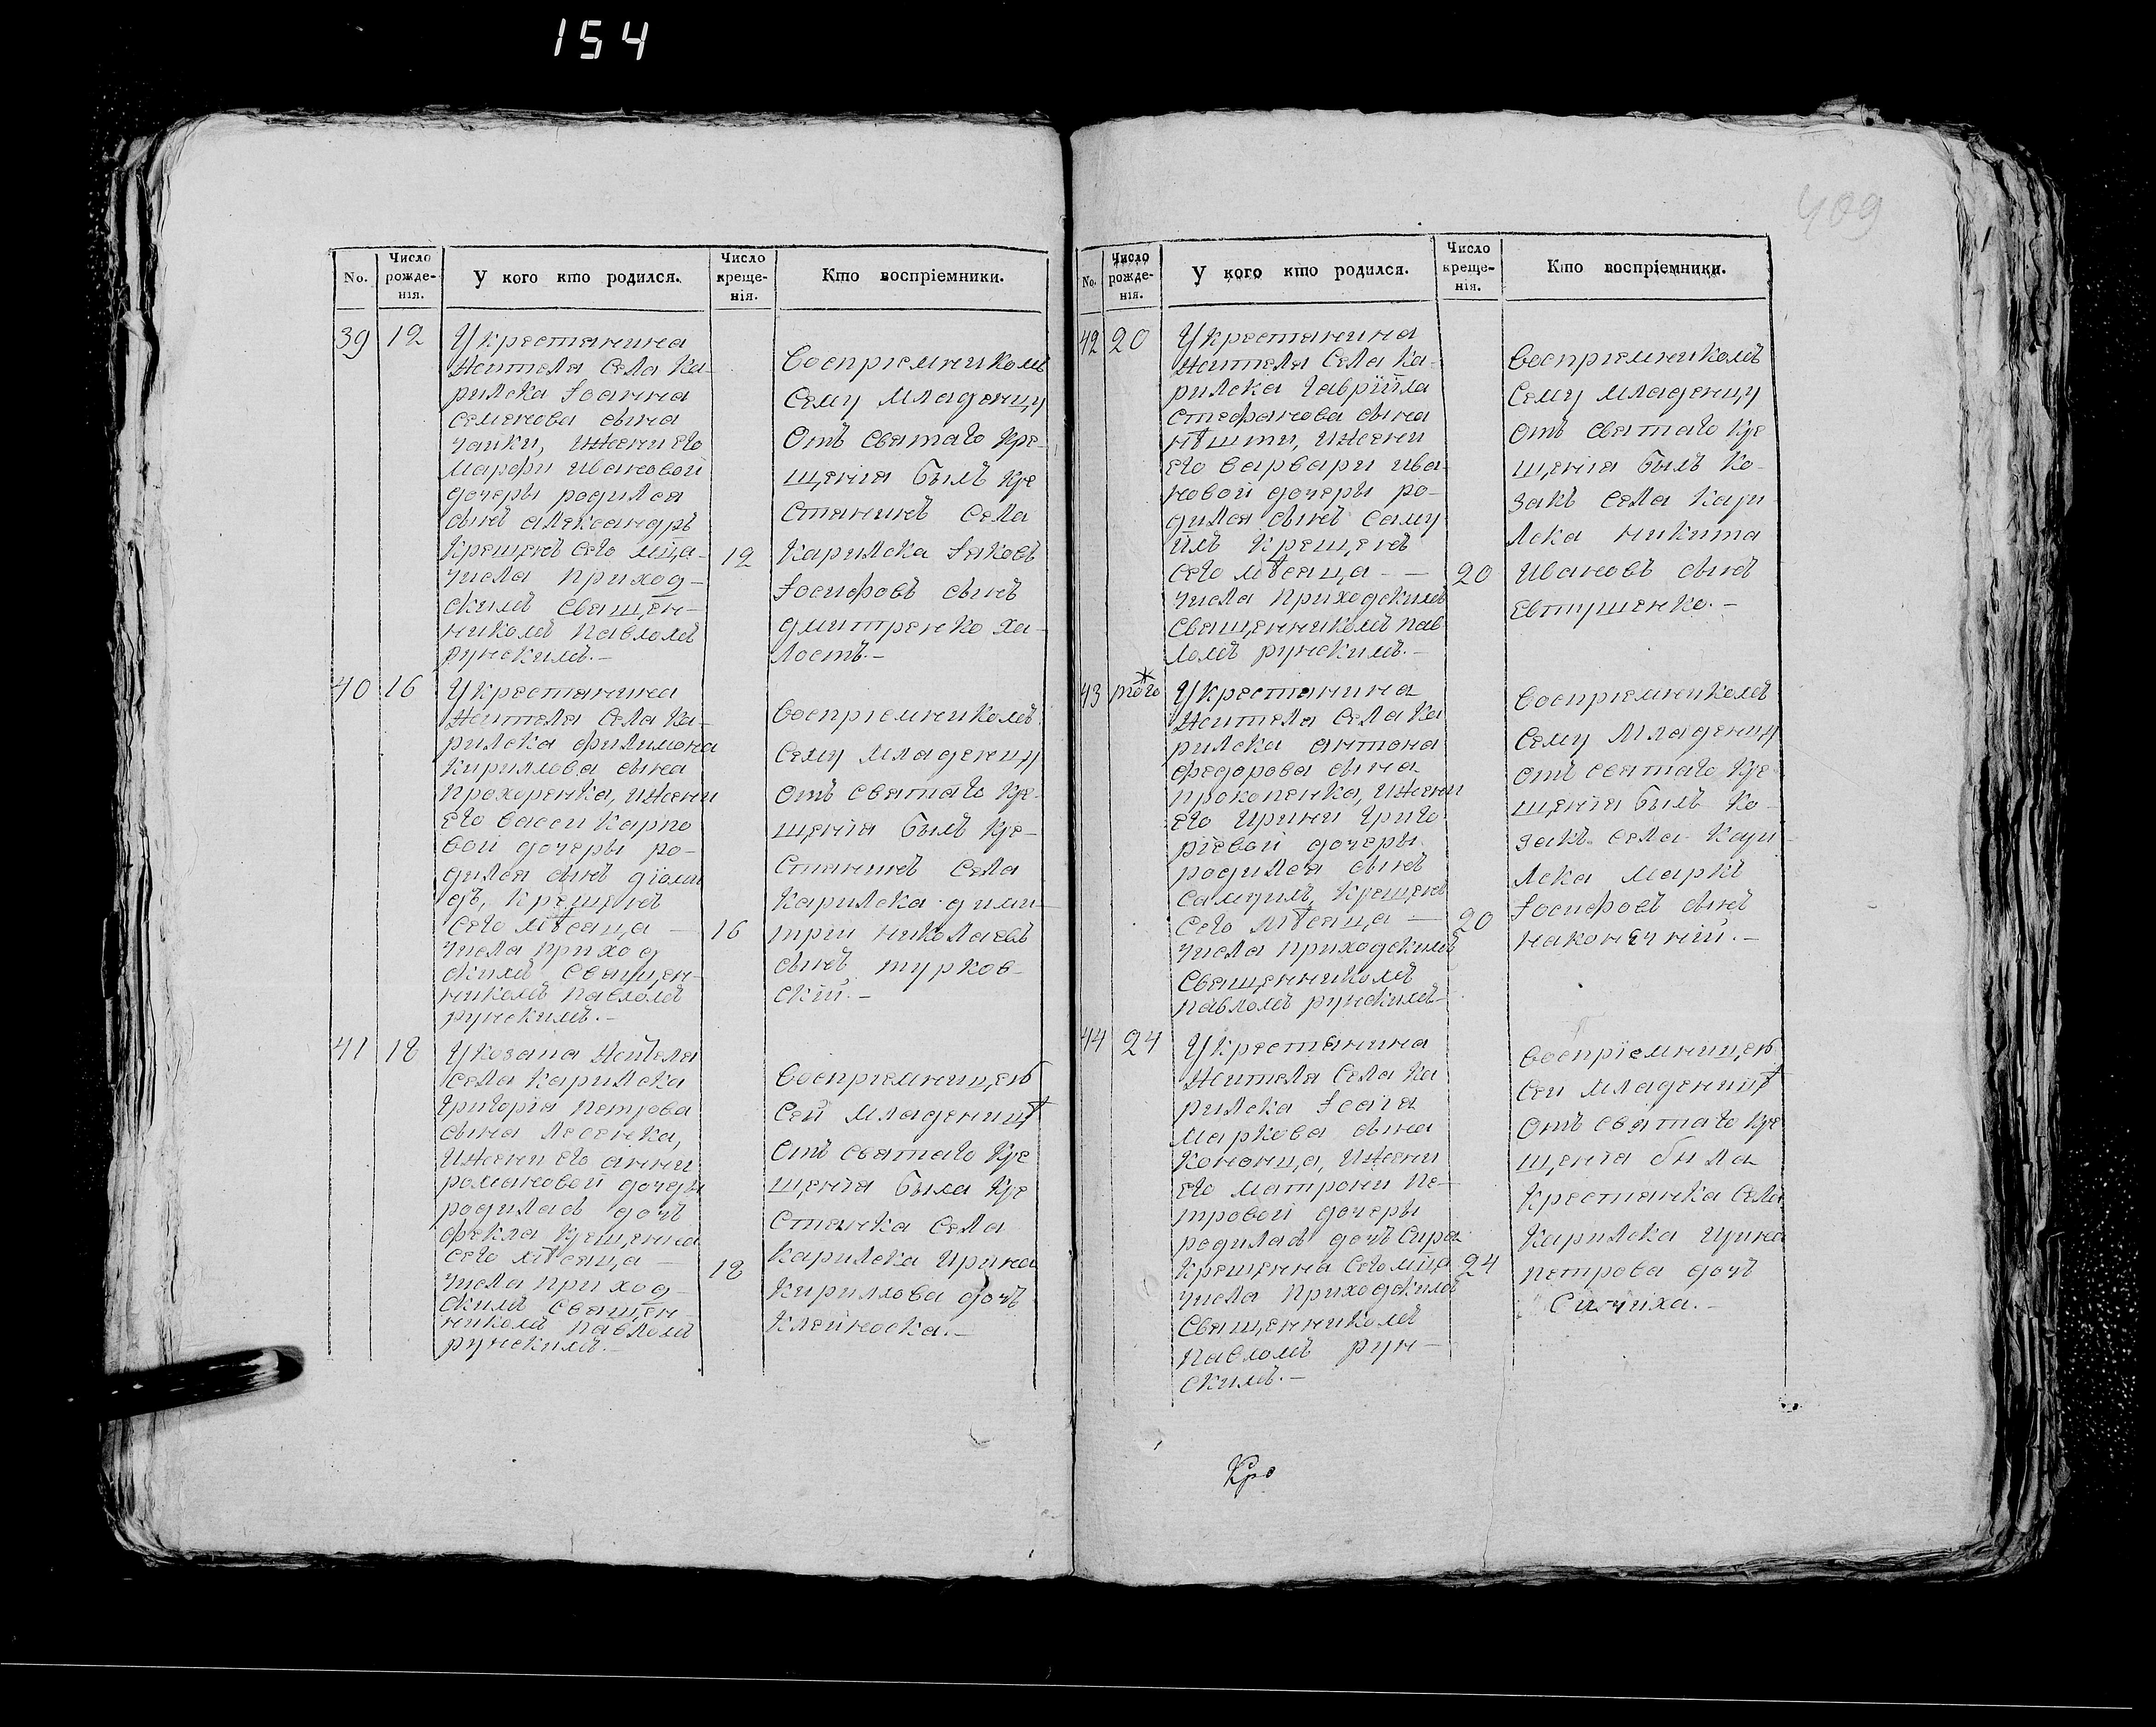 154
409
No.
Число рожде- нія.
У кого кто родился.
Число креще- нія.
Кто воспріемники.
39 12 У крестянина
жителя села Ка-
рилска Іоанна
Семенова сына
чайки, ижени его
Марфи ивановой
дочеры родился
сынъ александръ
крещенъ сего мца-
числа приход-
скимъ священ-
никомъ павломъ
рунскимъ.-
12
воспріемникомъ
сему младенцу
отъ святаго кре-
щенія былъ кре
стянинъ села
карилска яковъ
Іосифовъ сынъ
дмитренко ха-
лостъ.-
40 16 У крестянина
жителя села ка-
рилска филимона
кириллова сына
прохоренка, ижени
его васси карпо
вой дочеры ро-
дился сынъ діоми
дъ, крещенъ
сего мѣсяца -
числа приход
скимъ священ-
никомъ павломъ
рунскимъ.-
16
воспріемникомъ
сему младенцу
отъ святаго кре-
щенія былъ кре-
стянинъ села
карилска дими-
трій николаевъ
сынъ турков-
скій.-
41 18 У козака жителя
села карилска
григорія петрова
сына лесенка,
ижени его анни
романовой дочеры
родилась дочь
фекла крещенна
сего мѣсяца -
числа приход-
скимъ священ-
никомъ павломъ
рунскимъ.-
18
воспріемницею
сей младеницѣ
отъ святаго кре
щенія была кре
стянка села
карилска ирина
кириллова дочь
клейноска.-
No.
Число рожде- нія.
У кого кто родился.
Число креще- нія.
Кто воспріемники.
42 20 У крестянина
жителя села ка-
рилска гавріила
стефанова сына
ижени
его варвари ива-
новой дочеры ро-
дился сынъ саму
илъ крещенъ
сего мѣсяца - -
числа приходскимъ
священникомъ пав
ломъ рунскимъ.-
20
воспріемникомъ
сему младенцу
отъ святаго кре
щенія былъ ко-
закъ села кари
лска никита
ивановъ сынъ
евтушенко.-
43 того У крестянина
жителя села ка
рилска антона
федорова сына
прокопенка, ижени
его ирини григо
ріевой дочеры
родился сынъ
самуилъ, крещенъ
сего мѣсяца -
числа приходскимъ
священникомъ
павломъ рунскимъ-
20
воспріемникомъ
сему младенцу
отъ святаго кре-
щенія былъ ко-
закъ села кари
лска маркъ
Іосифовъ сынъ
наконечній.-
44 24 У крестянина
жителя села ка
рилска Ісаія
маркова сына
кононца, ижени
его матрони пе-
тровой дочеры
родилась дочь сира
крещенна сего мца
числа приходскимъ
священникомъ
павломъ рун-
скимъ.-
24
воспріемницею
сей младеницѣ
отъ святаго кре
щенія была
крестянка села
карилска ирина
петрова дочь